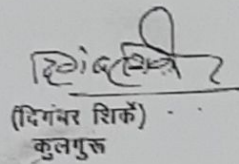 (दिगंबर शिर्के)
कुलगुरू